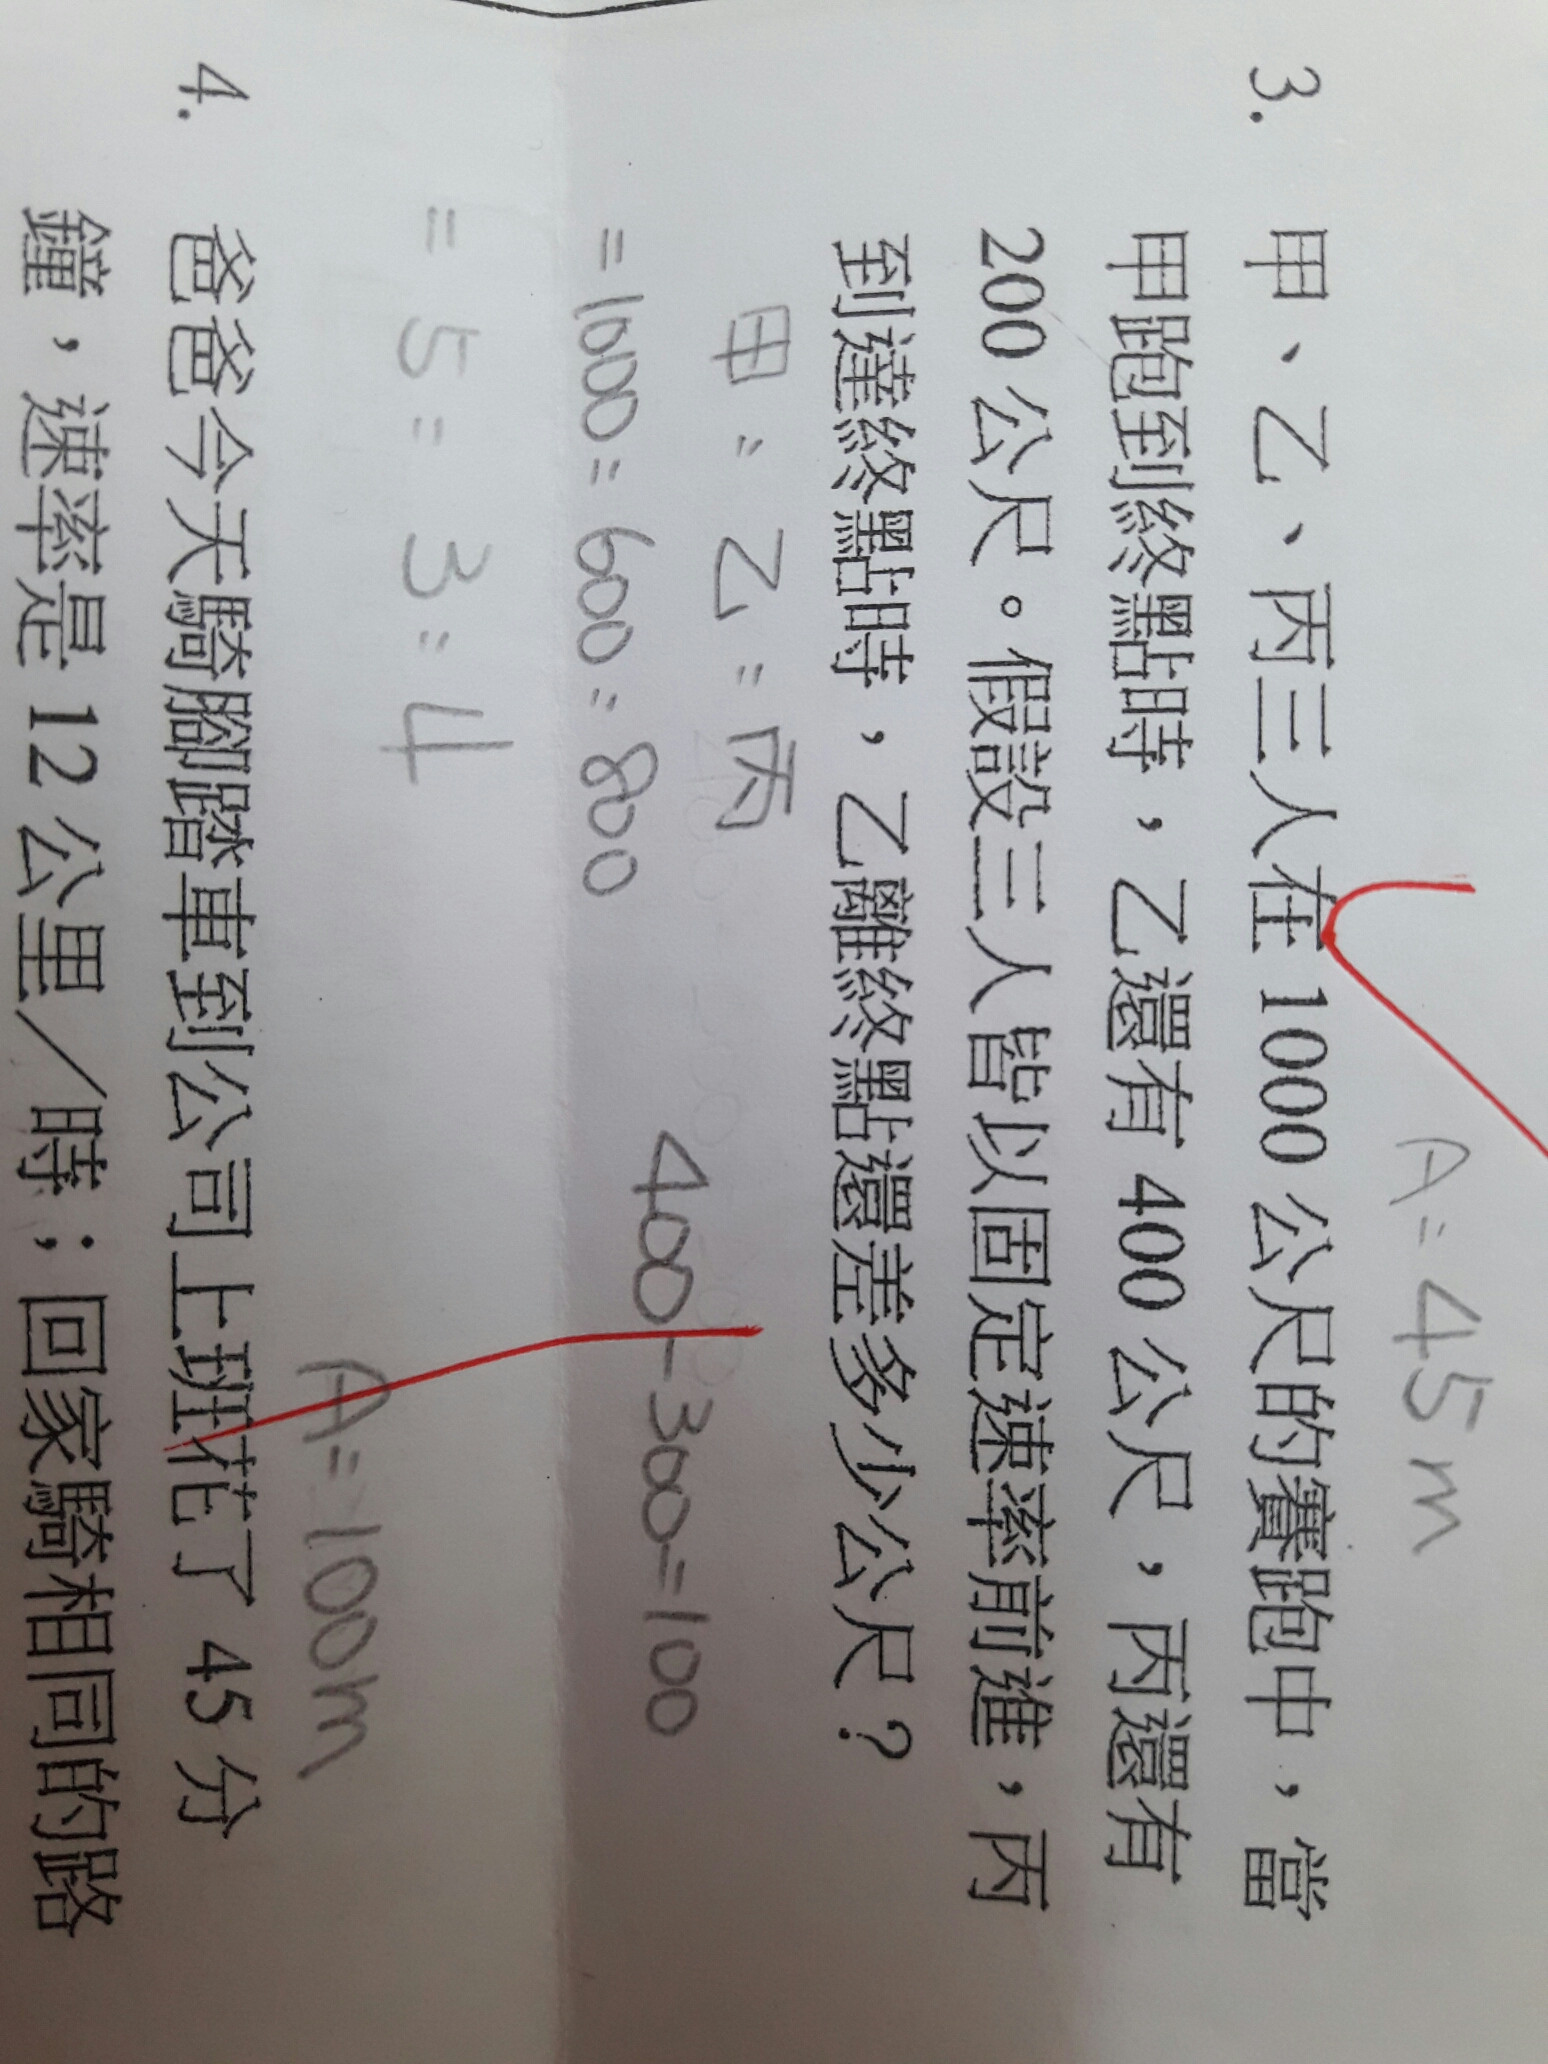 A=45m
3. 甲、乙、丙三人在 1000 公尺的賽跑中，當
甲跑到終點時，乙還有 400 公尺，丙還有
200 公尺。假設三人皆以固定速率前進，丙
到達終點時，乙離終點還差多少公尺？
甲:乙:丙
=1000:600:800
400-300=100
=5:3:4
A=100m
4. 爸爸今天騎腳踏車到公司上班花了 45 分
鐘，速率是 12 公里／時；回家騎相同的路